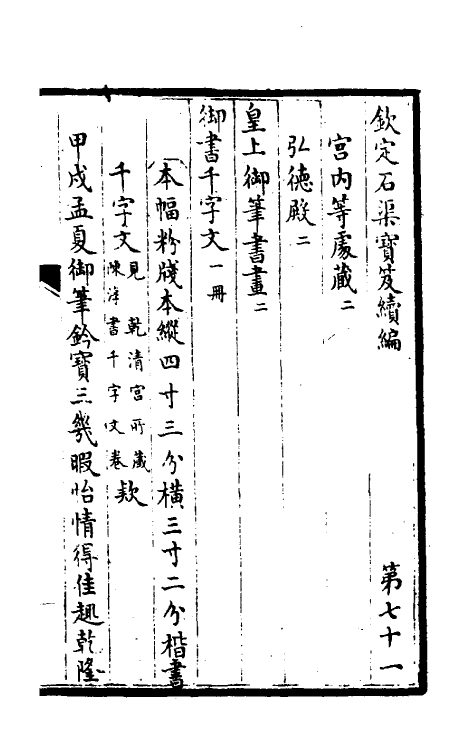 欽定石渠寶笈續編 第七十一
宮內等處藏二
弘德殿二
皇上御筆書畫二
御書千字文一冊
本幅粉牋本縱四寸三分橫三寸二分楷書
千字文見乾清宮所藏陳淳書千字文卷款
甲戌孟夏御筆鈐寶三幾暇怡情得佳趣乾隆